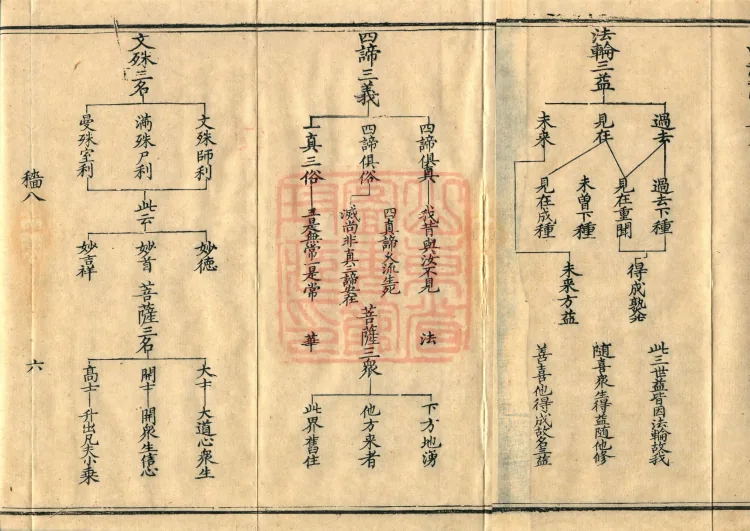 法輪三益
過去
見在
未來
過去下種
見在重聞
未曾下種
見在成種
得成熟脫
未來方益
此三世益皆因法輪故我
隨喜衆生得益隨他修
善喜他得成故名三益
四諦三義
四諦俱真
四諦俱俗
一真三俗
我昔與汝不見
四真諦久流生死
滅尚非真三諦焉在
三是無常一是常
法
華
菩薩三衆
下方地湧
他方來者
此界舊住
文殊三名
文殊師利
滿殊尸利
曼殊室利
此云
妙德
妙首
妙吉祥
菩薩三名
大士
開士
高士
大道心衆生
開衆生信心
升出凡夫小乘
牆八
六